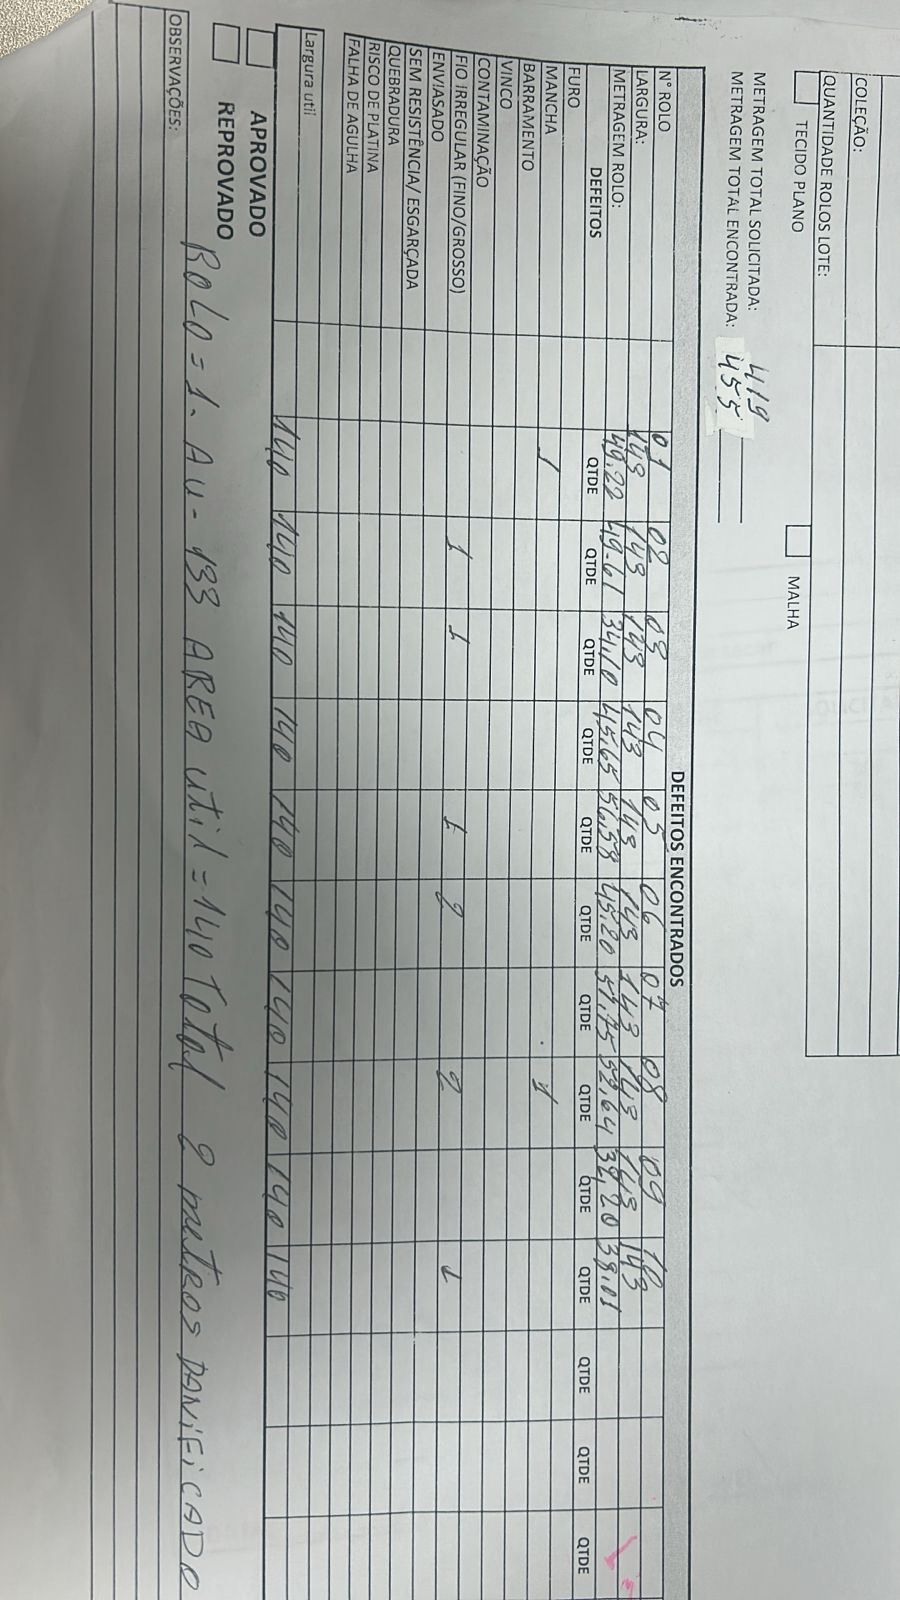 COLEÇÃO:
QUANTIDADE ROLOS LOTE:
TECIDO PLANO MALHA
METRAGEM TOTAL SOLICITADA: 419
METRAGEM TOTAL ENCONTRADA: 455
DEFEITOS ENCONTRADOS
N° ROLO 01 02 03 04 05 06 07 08 09 10
LARGURA: 143 143 143 143 143 143 143 143 143 143
METRAGEM ROLO: 49,22 49-61 34,10 45,65 45,20 52,64 38,01
DEFEITOS QTDE QTDE QTDE QTDE QTDE QTDE QTDE QTDE QTDE QTDE QTDE QTDE QTDE
FURO
MANCHA 1 1
BARRAMENTO
VINCO
CONTAMINAÇÃO
FIO IRREGULAR (FINO/GROSSO) 1 1 1 2 2 1
ENVIASADO
SEM RESISTÊNCIA/ ESGARÇADA
QUEBRADURA
RISCO DE PLATINA
FALHA DE AGULHA
Largura util 140 140 140 140 140 140 140 140 140 140
APROVADO
REPROVADO
OBSERVAÇÕES: ROLO = 1. AU - 133 AREA util = 140 total 2 metros DANIFICADO